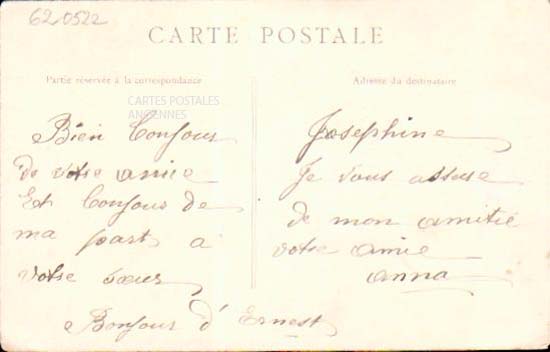 620522
CARTE POSTALE
Partie réservée à la correspondance
CARTES POSTALES
ANCIENNES
Bien Conjour
de votre amie
Et Conjour de
ma part a
votre sœur
Bonjour d'Ernest
Adresse du destinataire
Josephine
Je vous assuse
de mon amitié
votre amie
anna